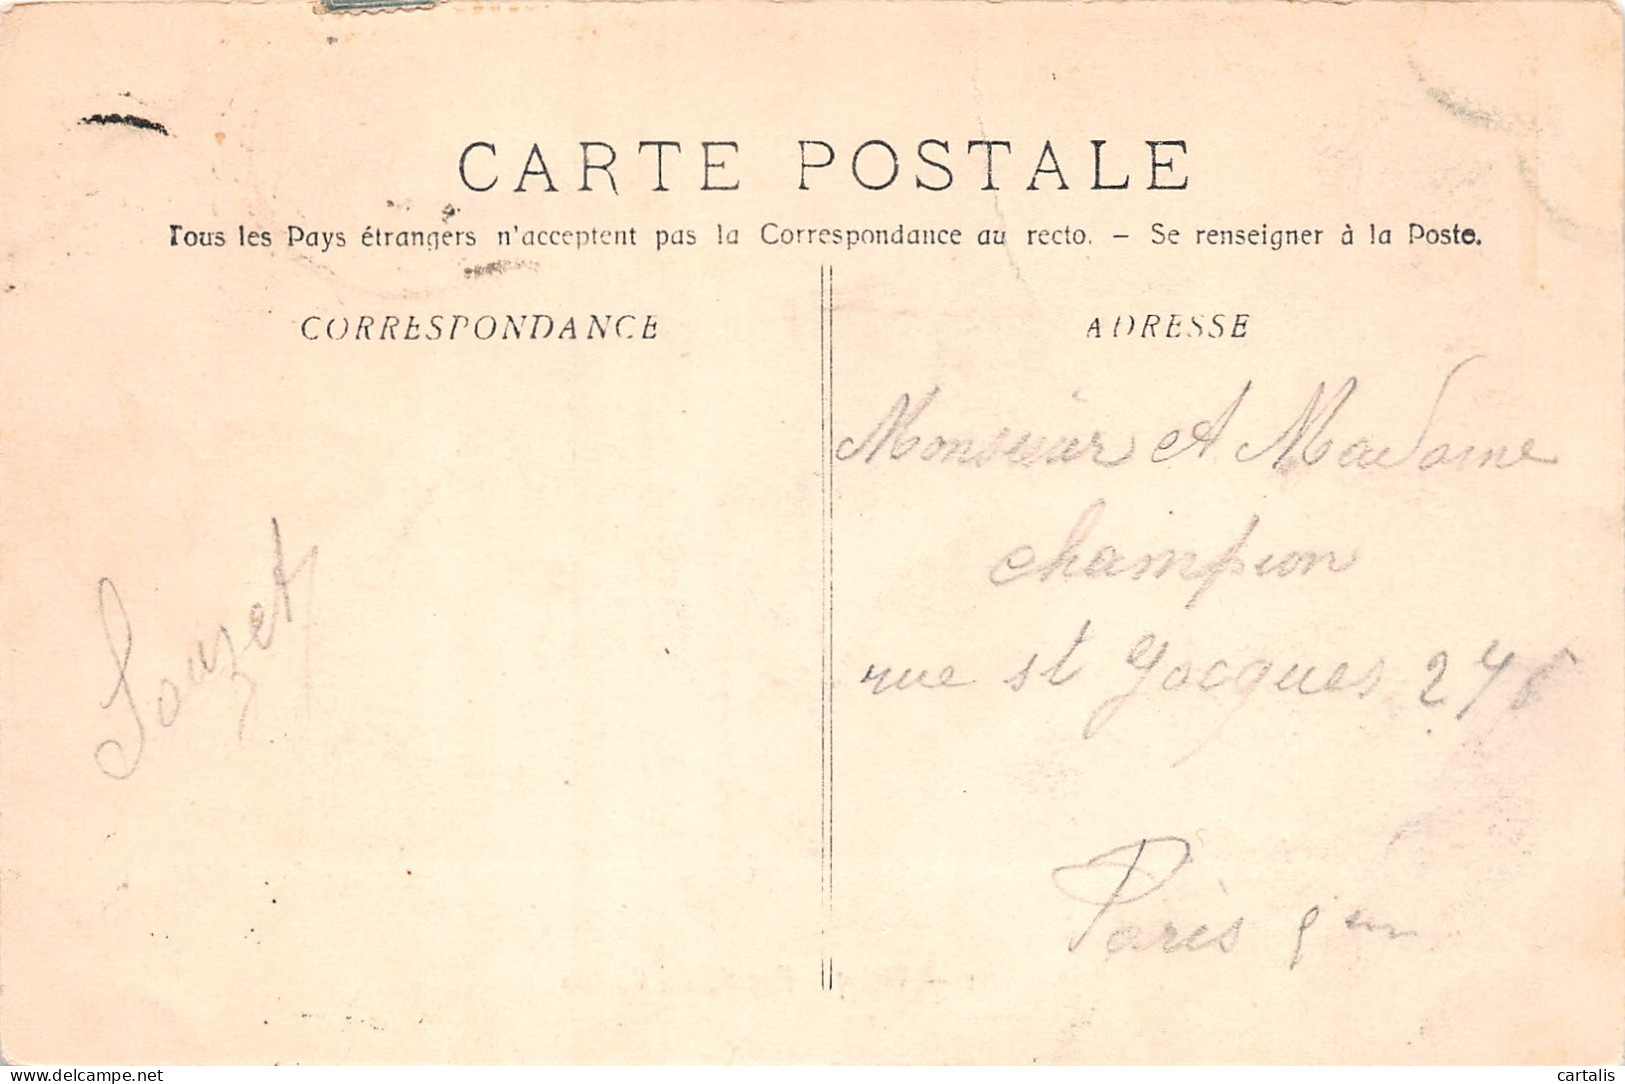 CARTE POSTALE
Tous les Pays étrangers n'acceptent pas la Correspondance au recto. – Se renseigner à la Poste.
CORRESPONDANCE
ADRESSE
Monsieur et Madame
champion
rue st Jacques
Paris
Souzet
delcampe.net
cartalis